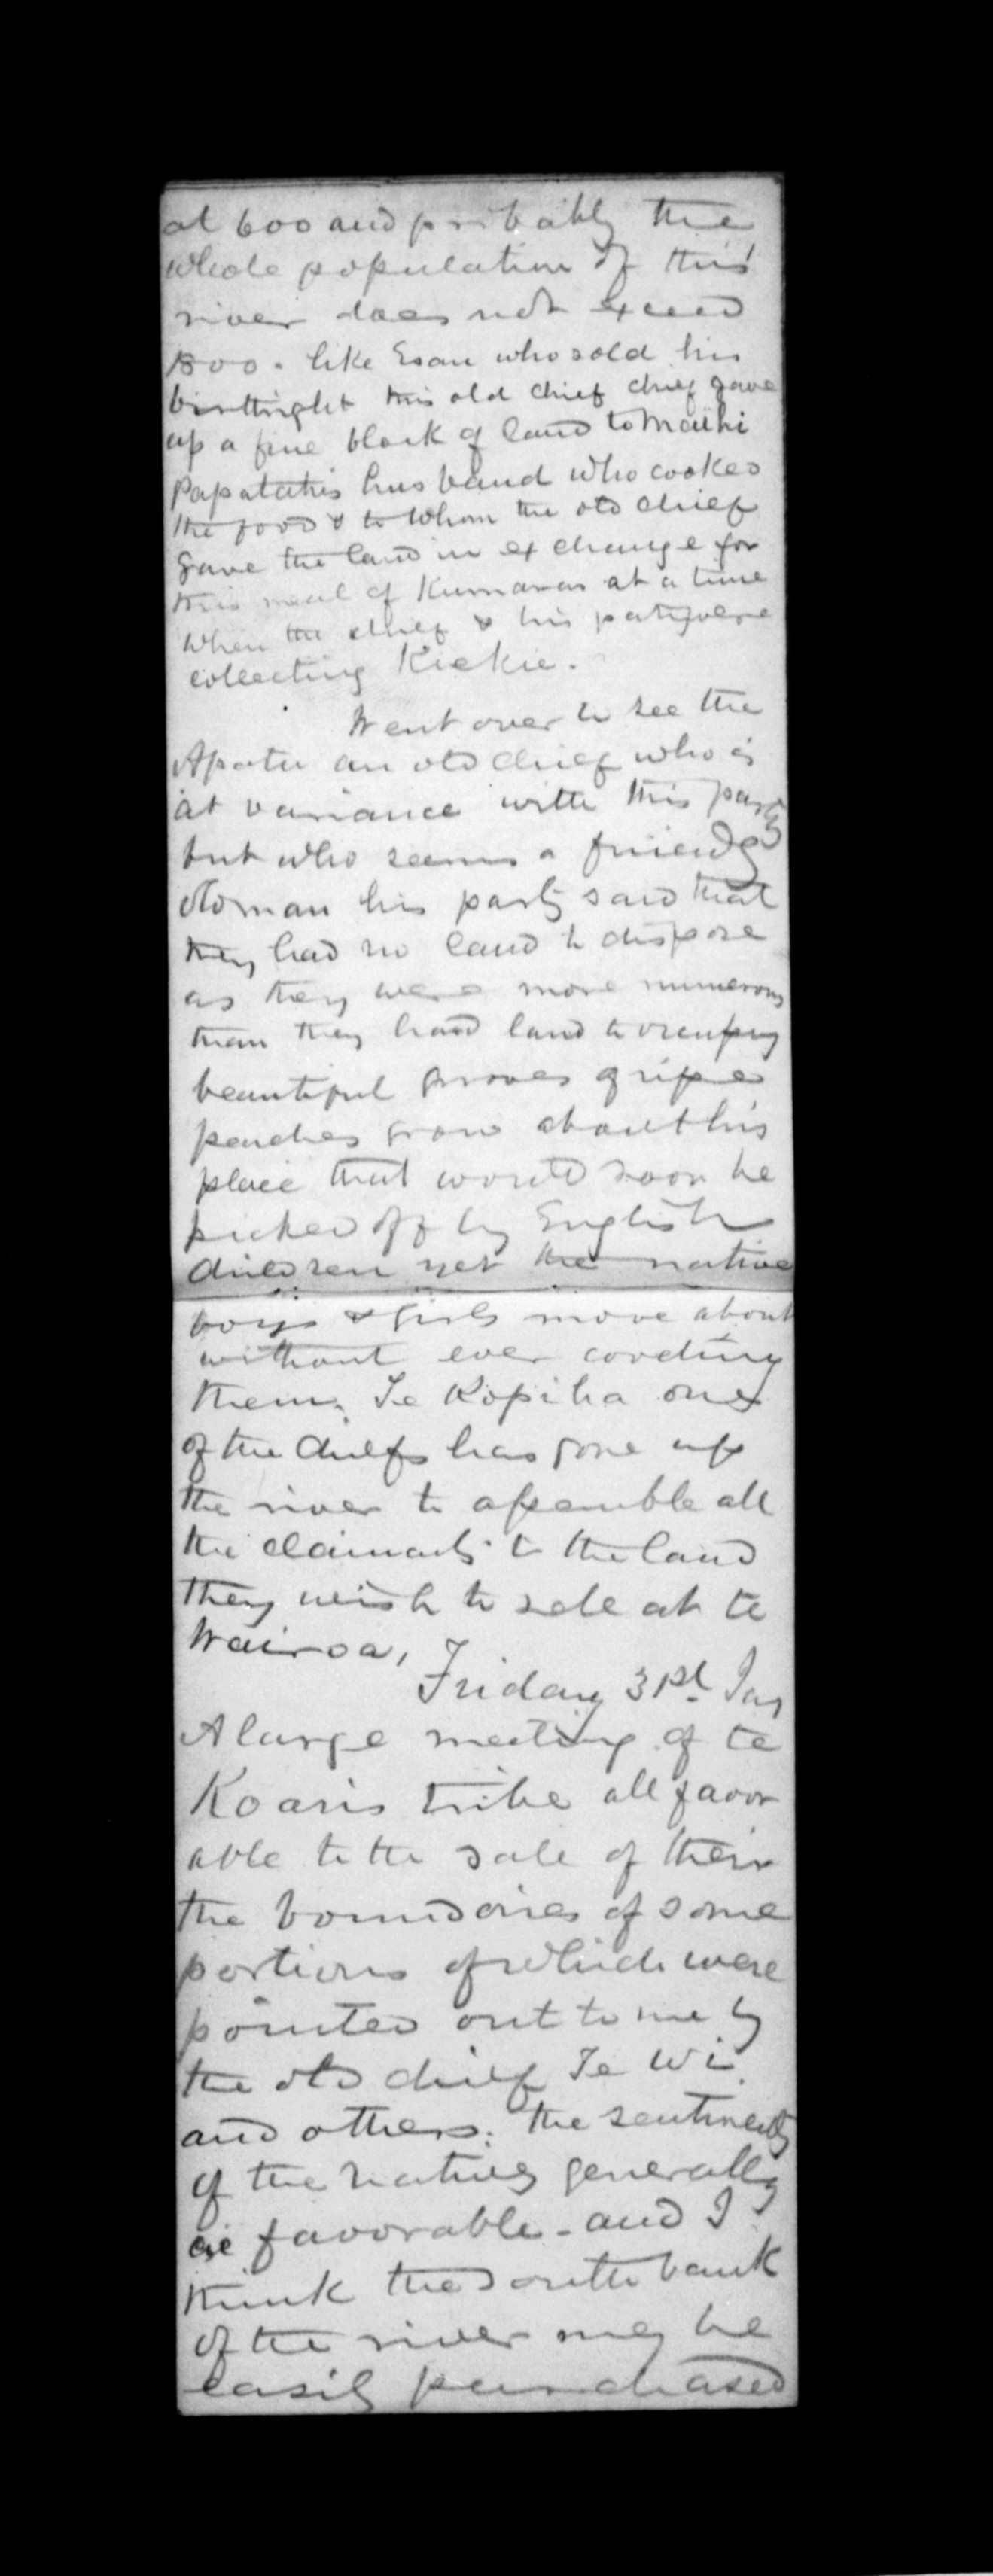 at 600 and probably the
whole population of this
river does not exceed
1800. like Esau who sold his
birthright this old chief chief gave
up a fine block of land to Maihi
Papatahis husband who cookes
the food & to whom the old chief
gave the land in exchange for
this meal of Kumaras at a time
when the chief & his party were
collecting Kiekie.
Went over to see the
Apatu an old chief who is
at variance with this party
but who seems a friendly
old man his party said that
they had no land to dispose
as they were more numerous
than they had land to occupy
beautiful groves of ripe
peaches grow about his
place that would soon be
picked off by English
children yet the native
boys & girls move about
without ever coveting
them. Te Kopiha one
of the chiefs has gone up
the river to assemble all
the claimants to the land
they wish to sele at te
Wairoa,
Friday 31st Jan
A large meeting of te
Koaris tribe all favor
able to the sale of their
the boundaries of some
portions of which were
pointed out to me by
the old chief Te Wi
and others. the sentiments
of the natives generally
are favorable - and I
think the south bank
of the river may be
easily purchased